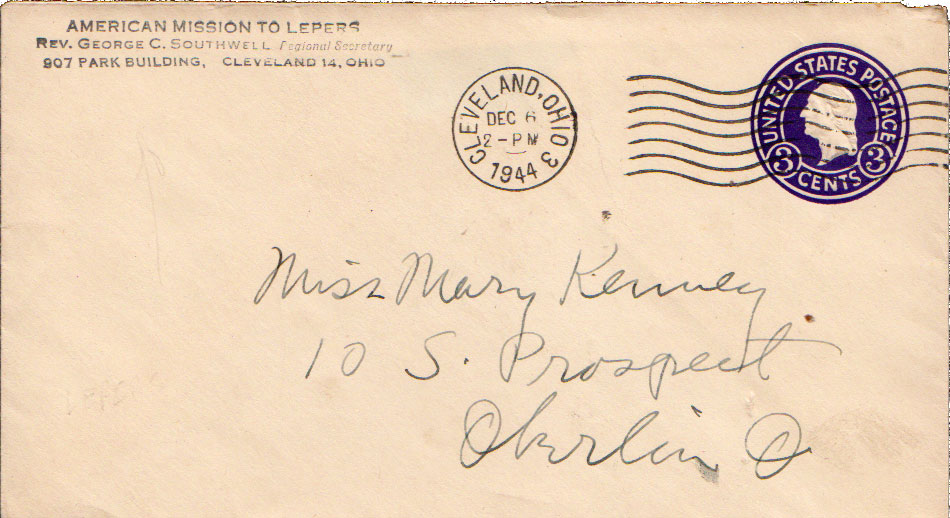 AMERICAN MISSION TO LEPERS
REV. GEORGE C. SOUTHWELL Regional Secretary
907 PARK BUILDING, CLEVELAND 14, OHIO
CLEVELAND, OHIO 3
DEC 6
2-PM
1944
UNITED STATES POSTAGE
3 3
CENTS
Miss Mary Kenney
10 S. Prospect
Oberlin O